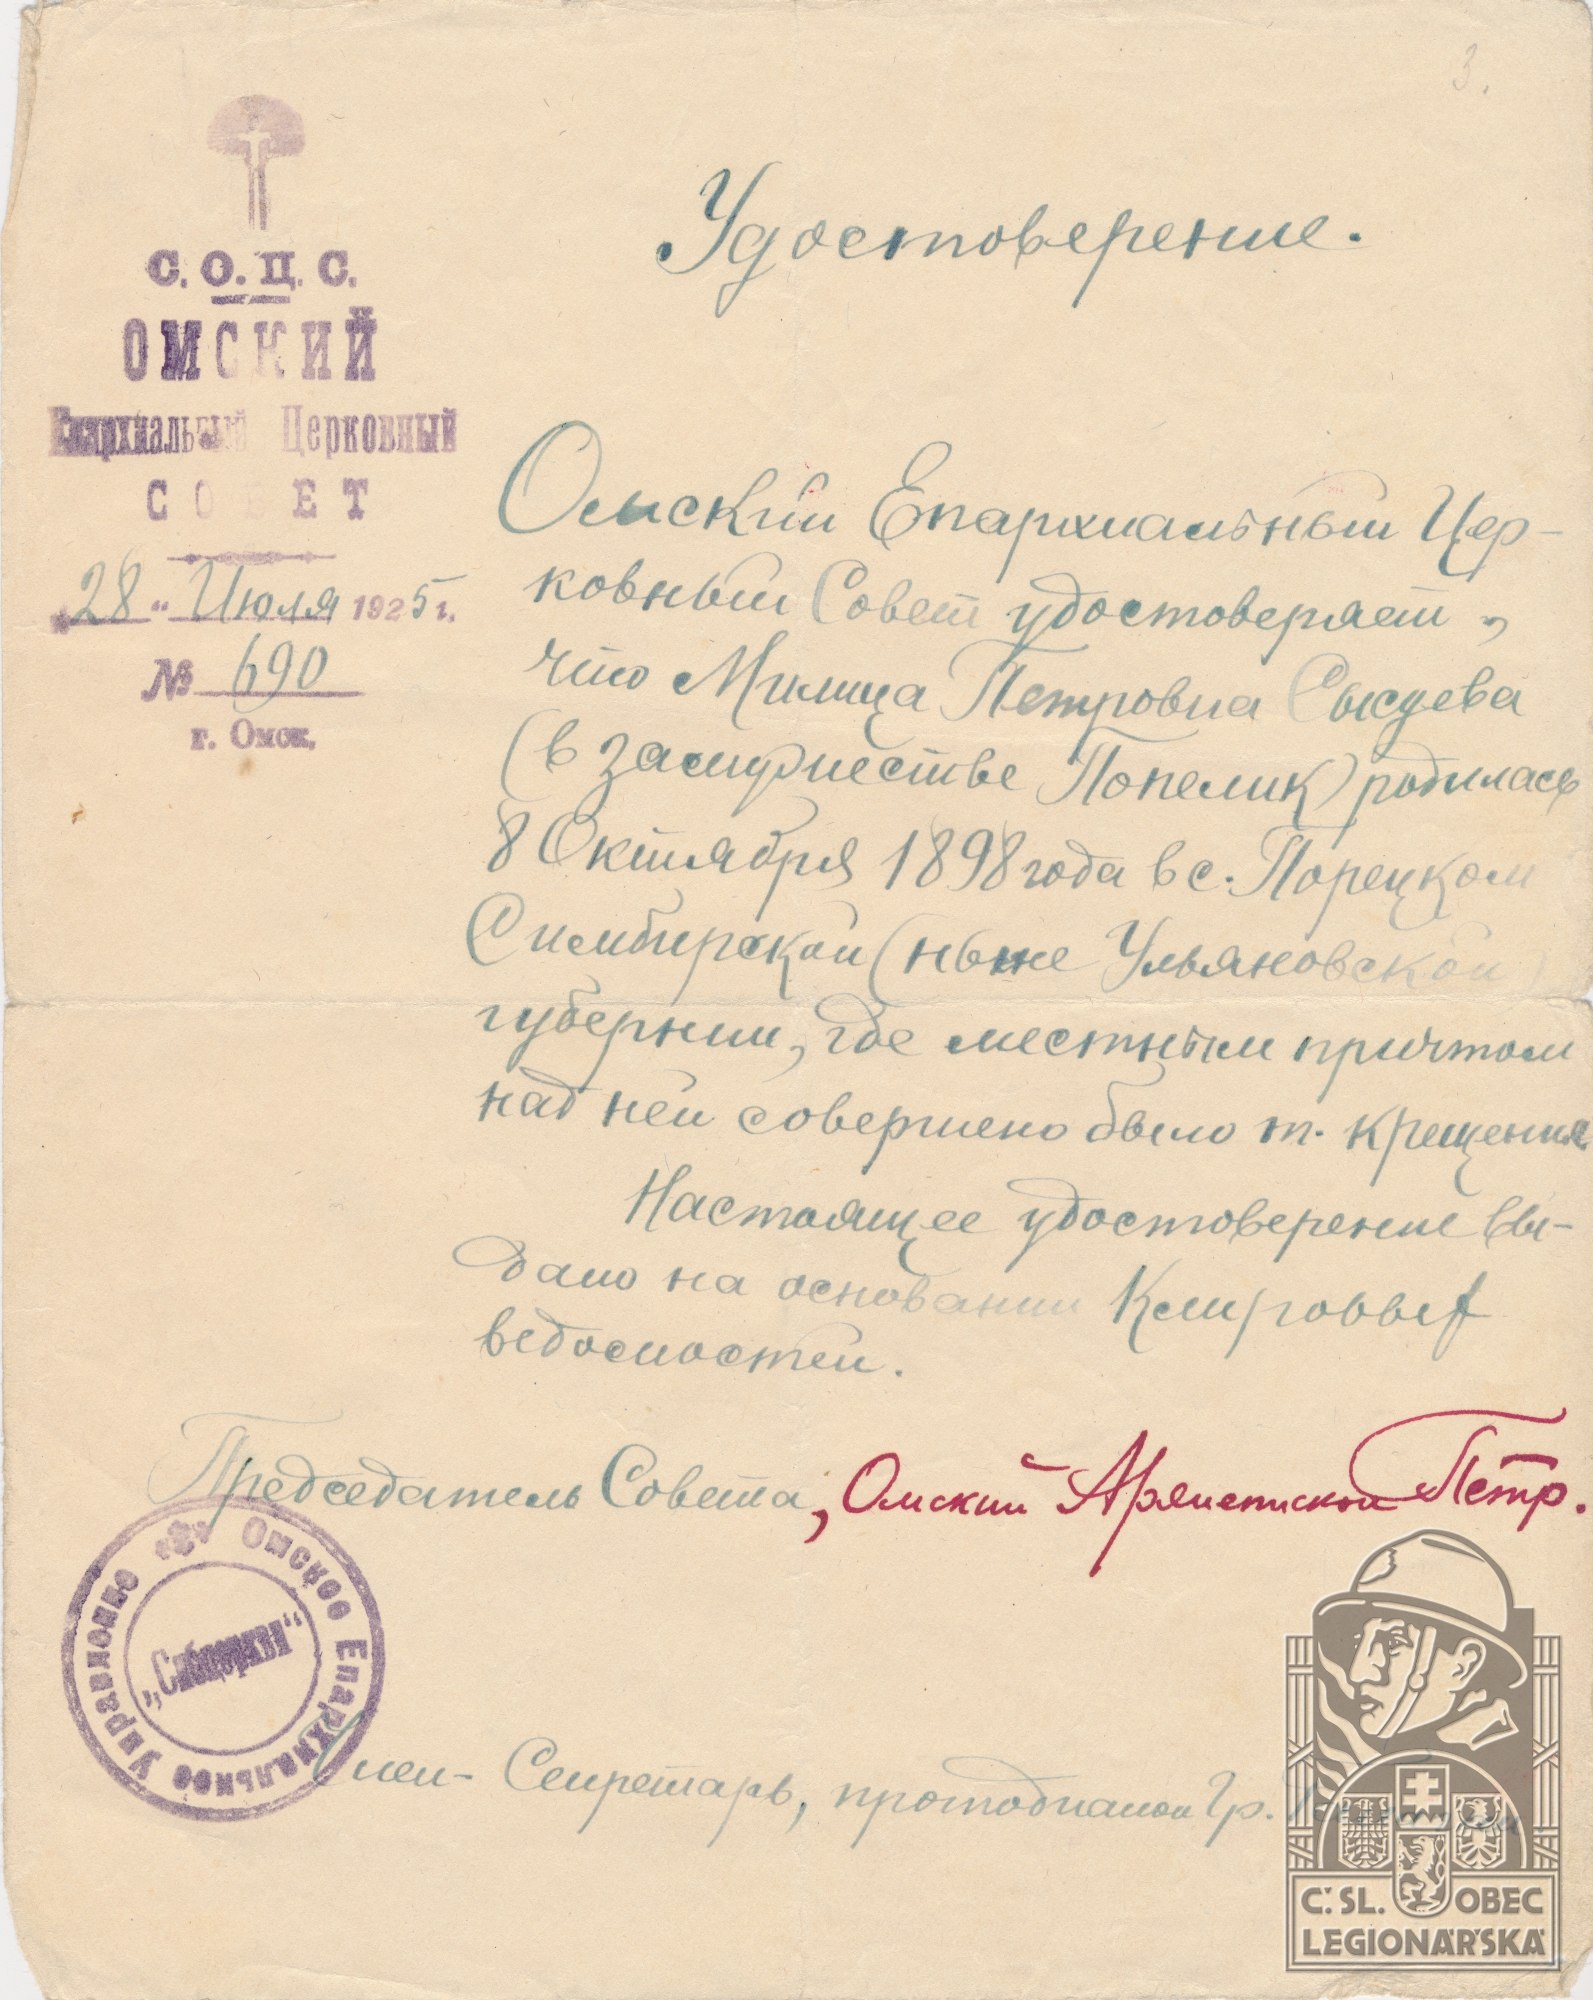 3.
С. О. Ц. С.
ОМСКИЙ
Епархиальный Церковный
СОВЕТ
„28" Июля 1925 г.
№ 690
г. Омск.
Удостоверение.
Омский Епархиальный Цер-
ковный Совет удостоверяет,
что Милица Петровна
(в замужестве Попелик) родилась
8 Октября 1898 года в с. Порецком
Симбирской (ныне Ульяновской)
губернии, где местным причтом
над ней совершено было т. крещения
Настоящее удостоверение вы-
дано на основании Клировых
ведомостей.
Председатель Совета, Омский Архиепископ Петр.
Омское Епархиальное Управление
„Сибцеркви"
Член-Секретарь, протодиакон Гр.
Č. SL. OBEC
LEGIONÁŘSKÁ